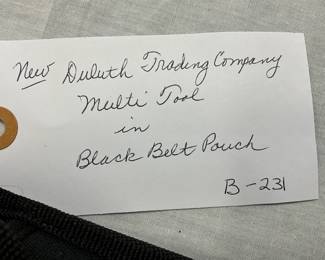 New Duluth Trading Company
Multi Tool
in
Black Belt Pouch
B-231